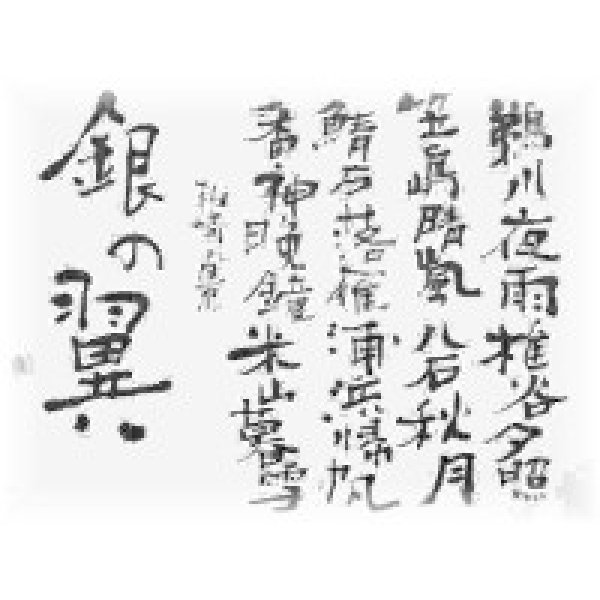 鵜川夜雨椎谷夕照
笠嶋晴嵐八石秋月
鯖石落雁浦浜帰帆
番神晩鐘米山暮雪
銀の翼